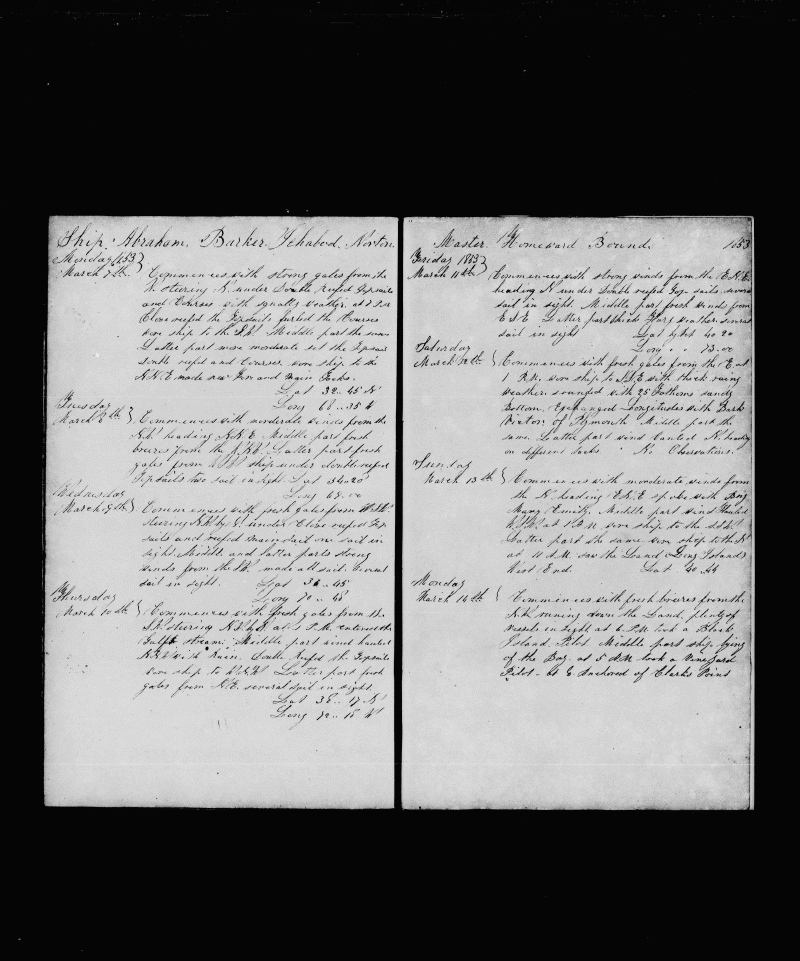 Ship Abraham Barker Ichabod Norton
Monday 1853
March 7th Commences with strong gales from the
N steering N. under Double Reefed Topsails
and Courses with squally weather, at 3 P.M
Close reefed the Topsails furled the Courses
wore ship to the Middle part the same
Latter part more moderate set the Topsails
double reefed and Courses wore ship to the
N.N.E made new Fore and main Tacks.
Lat 32..45 N
Long 68..35 W
Tuesday
March 8th Commences with moderate winds from the
heading N.N.E Middle part fresh
breezes from the Latter part fresh
gales from ship under double reefed
Topsails two sail in sight. Lat 34..20
Long 69.00
Wednesday
March 9th Commences with fresh gales from
steering under Close reefed Top
sails and reefed main sail one sail in
sight. Middle and latter parts strong
winds from the made all sail. Several
sail in sight. Lat 36..45
Long 70..48
Thursday
March 10th Commences with fresh gales from the
steering at 3 P.M. entered the
Gulf stream. Middle part wind hauled
with Rain. Double Reefed the Topsails
wore ship to Latter part fresh
gales from N.E. several sail in sight.
Lat 38..17 N
Long 72..18 W
Master. Homeward Bound. 1853
Friday 1853
March 11th Commences with strong winds from the E.N.E.
heading N under Double reefed Top sails, several
sail in sight, Middle part fresh winds from
E.S.E. Latter part thick Fogy weather several
sail in sight Lat by 40..20
Long .. 73.00
Saturday
March 12th Commences with fresh gales from the E. at
1 P.M. wore ship to S.S.E with thick rainy
weather. sounded with 25 Fathoms sandy
Bottom. Exchanged Longitudes with Bark
of Plymouth Middle part the
same. Latter part wind canted N. heading
on different tacks. No Observations.
Sunday
March 13th Commences with moderate winds from
the N. heading E.N.E spoke with Brig
Mary Emily. Middle part wind Hauled
at 12 M wore ship to the
Latter part the same wore ship to the N
at 11 A.M. saw the Land (Long Island)
West End. Lat 40..44
Monday
March 14th Commences with fresh breezes from the
running down the Land, plenty of
vessels in sight at 6 P.M. took a Block
Island Pilot. Middle part ship lying
of the Bay. at 5 A.M. took a Vineyard
Pilot - at 8 Anchored of Clarks Point